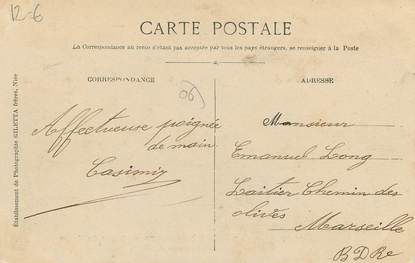 12-6
CARTE POSTALE
La Correspondance au recto n'étant pas acceptée par tous les pays étrangers, se renseigner à la Poste
CORRESPONDANCE
ADRESSE
06
Affectueuse poignée
de main
Casimir
Monsieur
Emanuel Long
Laitier Chemin des
olives
Marseille
BDRe
Etablissement de Photographie GILETTA frères, Nice